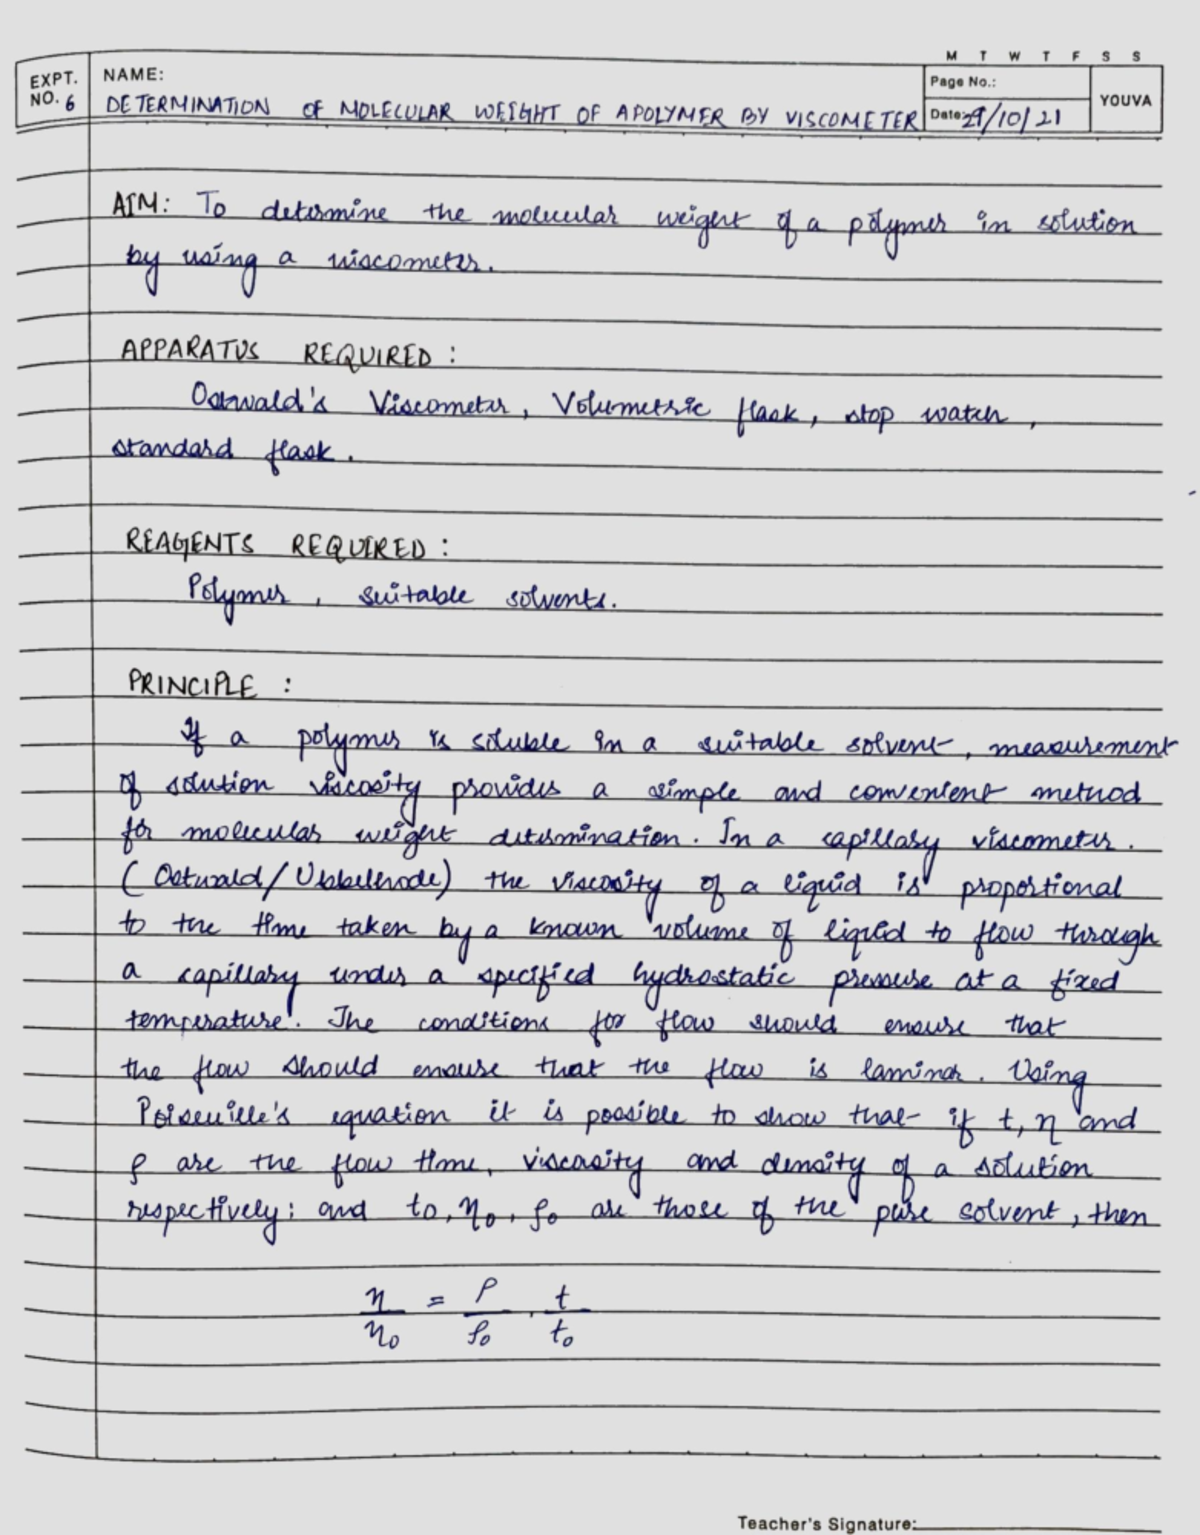 M T W T F S S
EXPT. NO. 6
NAME:
DETERMINATION OF MOLECULAR WEIGHT OF A POLYMER BY VISCOMETER
Page No.:
Date: 29/10/21
YOUVA
AIM: To determine the molecular weight of a polymer in solution
by using a viscometer.
APPARATUS REQUIRED :
Ostwald's Viscometer, Volumetric flask, stop watch,
standard flask.
REAGENTS REQUIRED :
Polymer, suitable solvents.
PRINCIPLE :
If a polymer is soluble in a suitable solvent, measurement
of solution viscosity provides a simple and convenient method
for molecular weight determination. In a capillary viscometer.
(Ostwald/Ubbelhode) the viscosity of a liquid is proportional
to the time taken by a known volume of liquid to flow through
a capillary under a specified hydrostatic pressure at a fixed
temperature. The conditions for flow should ensure that
the flow should ensure that the flow is laminar. Using
Poiseuille's equation it is possible to show that if t, η and
ρ are the flow time, viscosity and density of a solution
respectively; and to, ηo, ρo are those of the pure solvent, then
η/ηo = ρ/ρo . t/to
Teacher's Signature: